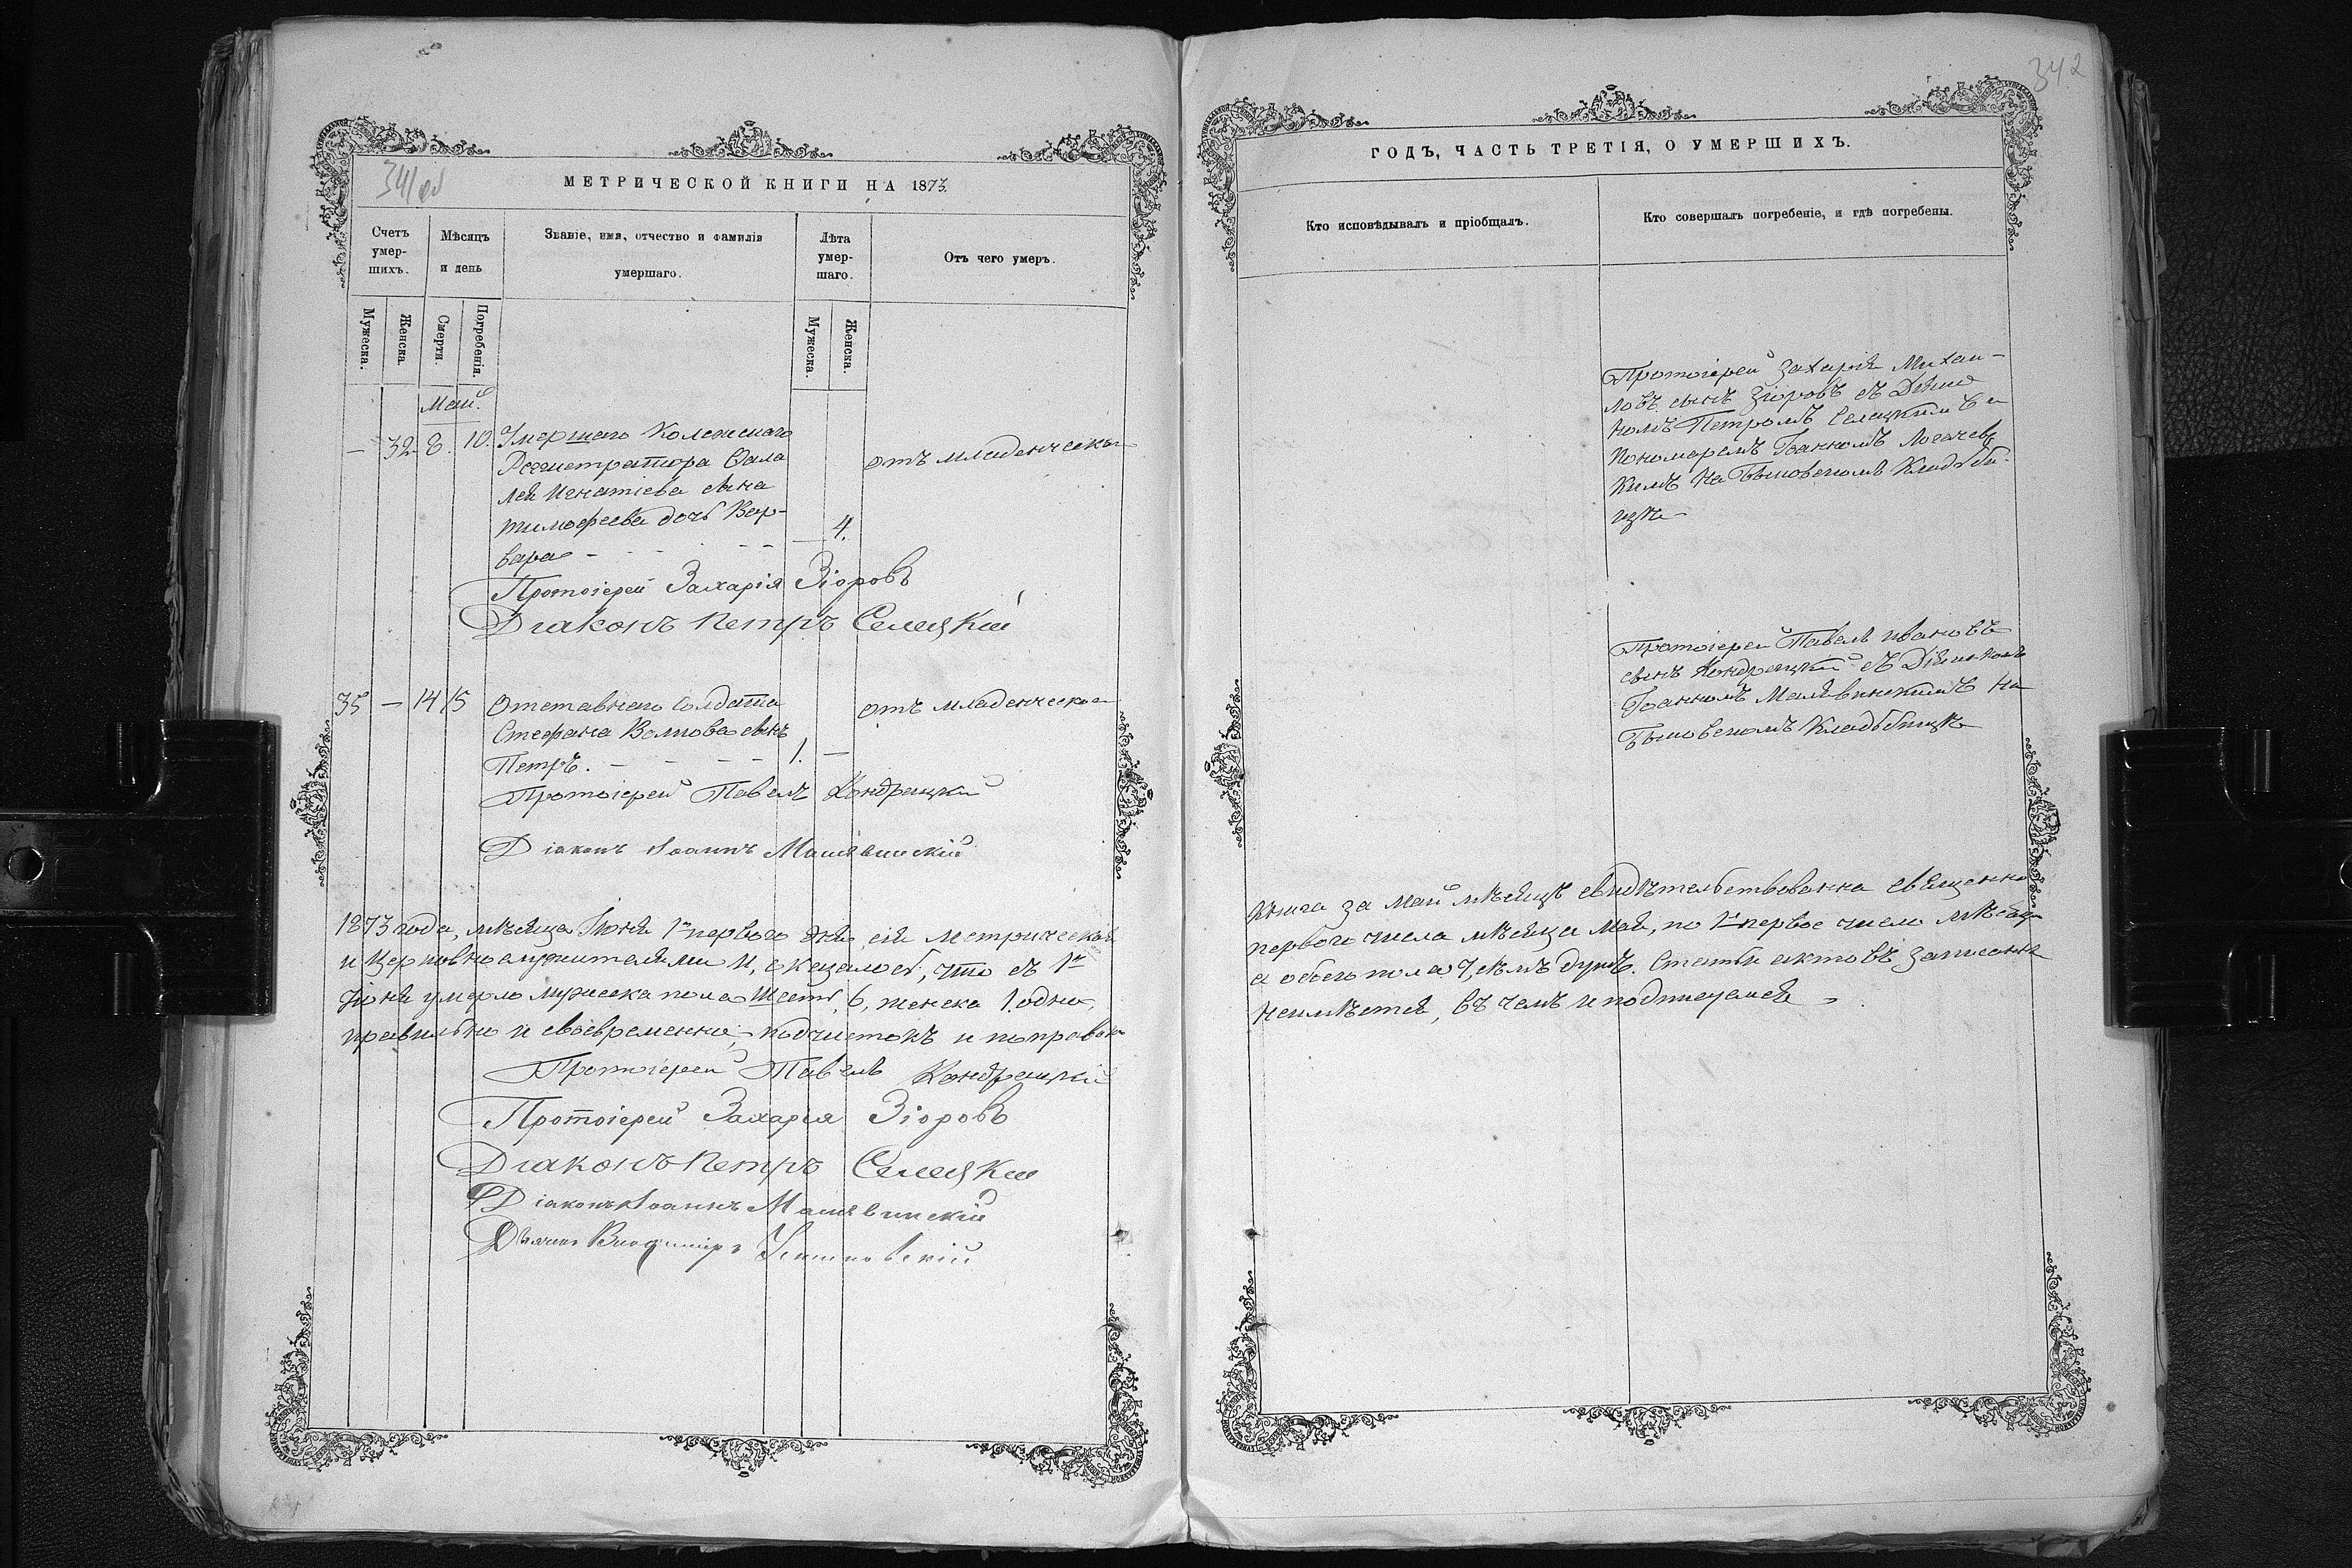 341 об
МЕТРИЧЕСКОЙ КНИГИ НА 1873
Счетъ умер-шихъ.
Мѣсяцъ и день
Званіе, имя, отчество и фамилія умершаго.
Лѣта умер-шаго.
Отъ чего умеръ.
Мужеска.
Женска.
Смерти.
Погребенія.
Мужеска.
Женска.
Май.
— 32 8. 10. Умершаго Колежскаго
Регистратора
Игнатіева сына
Тимофеева дочь Вар-
вара — 4.
отъ младенческой
Протоіерей Захарія Зіоровъ
Діаконъ Петръ Селецкій
35 — 14 15 Отставнаго Солдата
Стефана Волкова сынъ
Петръ. — — — — 1. —
отъ младенческой
Протоіерей Павелъ Кондрацкій
Діаконъ Іоаннъ Малявинскій
1873 года, мѣсяца Іюня 1го перваго дня, сія метрическая
и Церковнослужителями и, оказалось, что съ 1го
Іюня умерло мужеска пола шесть, 6, женска 1 одна,
правильно и своевременно; подчистокъ и поправокъ
Протоіерей Павелъ Кондрацкій
Протоіерей Захарія Зіоровъ
Діаконъ Петръ Селецкій
Діаконъ Іоаннъ Малявинскій
Дьячекъ Владиміръ
342
ГОДЪ, ЧАСТЬ ТРЕТІЯ, О УМЕРШИХЪ.
Кто исповѣдывалъ и пріобщалъ.
Кто совершалъ погребеніе, и гдѣ погребены.
Протоіерей Захарія Михаи-
ловъ сынъ Зіоровъ съ Діако
номъ Петромъ Селецкимъ и
пономаремъ Іоанномъ Логачевс
кимъ на Быковскомъ Кладбби-
щѣ —
Протоіерей Павелъ Ивановъ
сынъ Кондрацкій съ Діакономъ
Іоанномъ Малявинскимъ на
Быковскомъ Кладббищѣ
книга за Май мѣсяцъ свидѣтельствованна священно
перваго числа мѣсяца Мая, по 1е первое число мѣсяца
а обоего пола 7, семь душъ. Статьи актовъ записаны
неимѣется, въ чемъ и подписуемся —